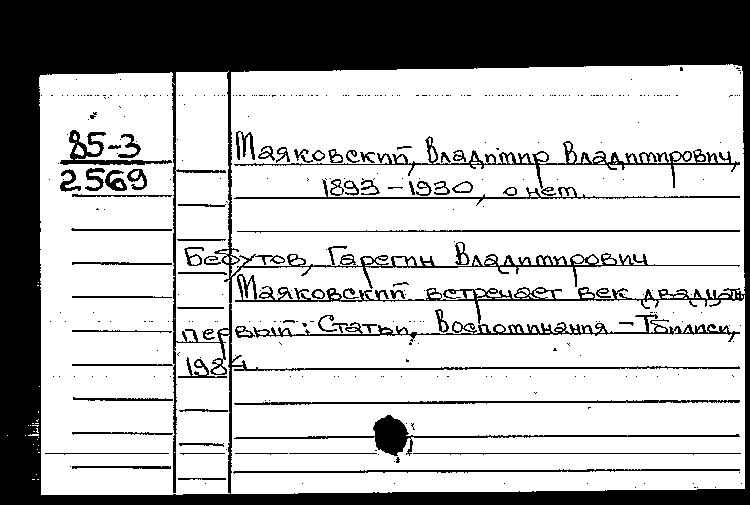 85-3
2569
Маяковский, Владимир Владимирович,
1893-1930, о нем.
Бебутов, Гарегин Владимирович
Маяковский встречает век двадцать
первый: Статьи, Воспоминания. - Тбилиси,
1984.